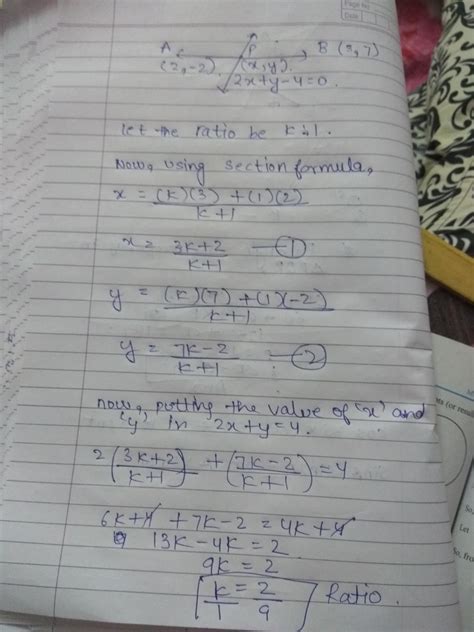 Page No
Date
A P B (3,7)
(2,-2) (x,y)
2x+y-4=0.
let the ratio be k:1.
Now, using section formula,
x = (k)(3) + (1)(2)
k+1
x = 3k+2 —①
k+1
y = (k)(7) + (1)(-2)
k+1
y = 7k-2 —②
k+1
now, putting the value of 'x' and
'y' in 2x+y=4.
2(3k+2) + (7k-2) = 4
k+1 k+1
6k+4 + 7k-2 = 4k+4
13k-4k = 2
9k = 2
k = 2 Ratio.
1 9
So,
Let
So, fro